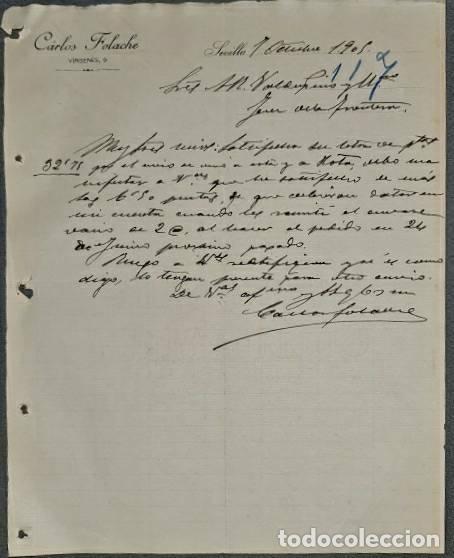 Carlos Folache
VIRGENES, 9
Sevilla 7 Octubre 1905
117
Sres A R Valdespino y Hno
Jerez de la Frontera
Muy Sres mios: Satisfecha su letra de ptas
32'75 por el envio de vino a esta y a Rota, debo ma
nifestar a Vdes que he satisfecho de más
las 6'50 pesetas, que debieron datar en
mi cuenta cuando les remití el envase
vacio de 2@, al hacer el pedido en 24
de Junio proximo pasado.
Ruego a Vdes rectifiquen y si es como
digo, lo tengan presente para otro envio.
De Vdes afmo y
Carlos Folache
todocoleccion.net